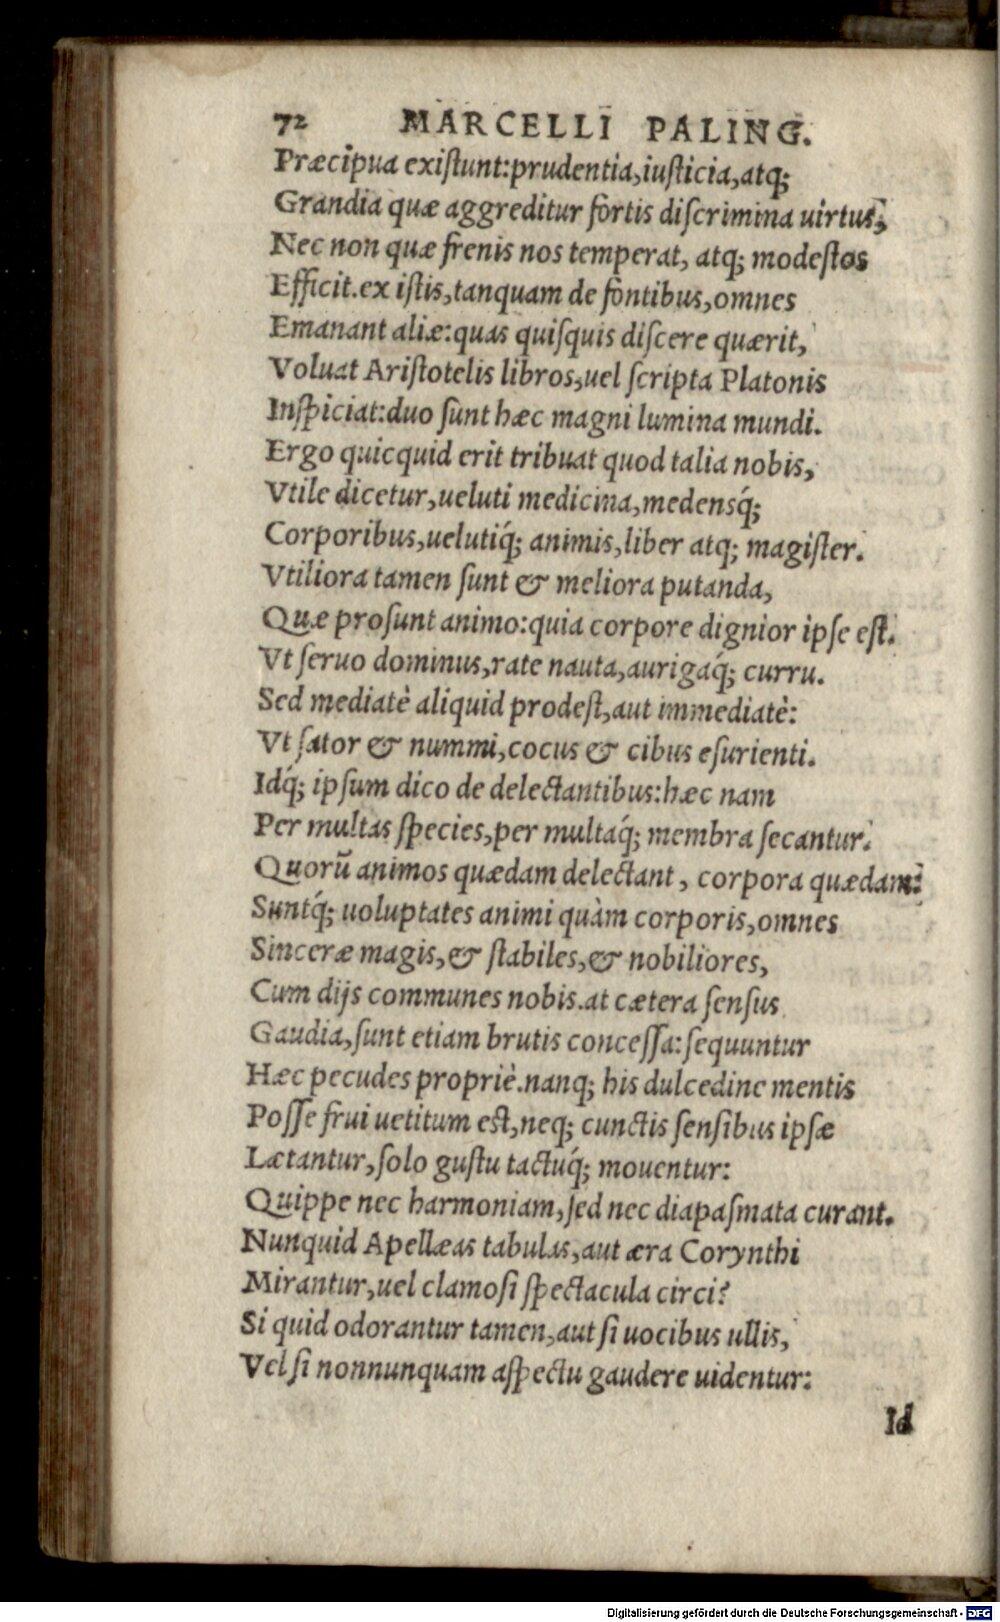 72 MARCELLI PALING.
Præcipua existunt:prudentia,iusticia,atq;
Grandia quæ aggreditur fortis discrimina uirtus,
Nec non quæ frenis nos temperat, atq; modestos
Efficit.ex istis,tanquam de fontibus,omnes
Emanant aliæ:quas quisquis discere quærit,
Voluat Aristotelis libros,uel scripta Platonis
Inspiciat:duo sunt hæc magni lumina mundi.
Ergo quicquid erit tribuat quod talia nobis,
Vtile dicetur,ueluti medicina,medensq́;
Corporibus,uelutiq́; animis,liber atq; magister.
Vtiliora tamen sunt & meliora putanda,
Quæ prosunt animo:quia corpore dignior ipse est.
Vt seruo dominus,rate nauta,aurigaq́; curru.
Sed mediatè aliquid prodest,aut immediatè:
Vt sator & nummi,cocus & cibus esurienti.
Idq́; ipsum dico de delectantibus:hæc nam
Per multas species,per multaq́; membra secantur.
Quorũ animos quædam delectant, corpora quædam:
Suntq́; uoluptates animi quàm corporis,omnes
Sinceræ magis,& stabiles,& nobiliores,
Cum dijs communes nobis.at cætera sensus
Gaudia,sunt etiam brutis concessa:sequuntur
Hæc pecudes propriè.nanq; his dulcedine mentis
Posse frui uetitum est,neq; cunctis sensibus ipsæ
Lætantur,solo gustu tactuq́; mouentur:
Quippe nec harmoniam,sed nec diapasmata curant.
Nunquid Apellæas tabulas,aut æra Corynthi
Mirantur,uel clamosi spectacula circi?
Si quid odorantur tamen,aut si uocibus ullis,
Vel si nonnunquam aspectu gaudere uidentur:
Id
Digitalisierung gefördert durch die Deutsche Forschungsgemeinschaft - DFG